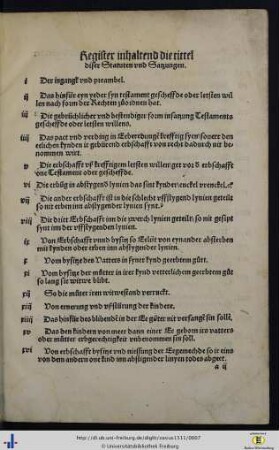 Register inhaltend die tittel
diser Statuten vnd Satzungen.
i Der ingangk vnd preambel.
ij Das hinfür eyn yeder syn testament gescheffde oder letsten wil
len nach form der Rechten zůo thůn hat.
iij Die gebrüchlicher vnd bestendiger form insatzung Testaments
gescheffde oder letsten willens.
iiij Das pact vnd verding in Eeberedunge krefftig syen souerr den
eelichen kynden ir gebürend erbschafft von recht dadurch nit be
nommen wirt.
v Die erbschafft vß krefftigem letsten willen get vor d erbschafft
one Testament oder gescheffde.
vi Die erbüg in abstygend lynien das sint kynder enckel vrenckel
vij Die ander erbschafft ist in die schlecht vffstygend lynien geteilt
so nit erben im abstygender lynien synt.
viij Die dritt Erbschafft im die zwerch lynien geteilt so nit gesipt
synt im der vffstygenden lynien.
ix Von Erbschafft vnnd bysitz so Eelüt von eyn ander absterben
nit kynden oder erben im abstygender lynien.
x Vom bysitze des Vatters in syner kynd geerbtem gůt.
xi Vom bysitze der můtter in irer kynd vetterlichem geerbtem gůt
so lang sie witwe blibt.
xij So die můter iren witwestand verruckt.
xiij Von emerung vnd vßstürung der kindere.
xiiij Das hinfür des blibends in der Ee gůter nit verfangẽ sin sollẽ.
xv Das den kindern von meer dann einer Ee geborn im vatters
oder můtter erbgerechtigkeit vnbenommen sin soll.
xvi Von erbschafft bysitz vnd niessung der Eegemechde so ir eins
von dem andern one kind im abstigender linyen todes abgeet.
a ij
http://dl.ub.uni-freiburg.de/diglit/zasius1511/0007
© Universitätsbibliothek Freiburg